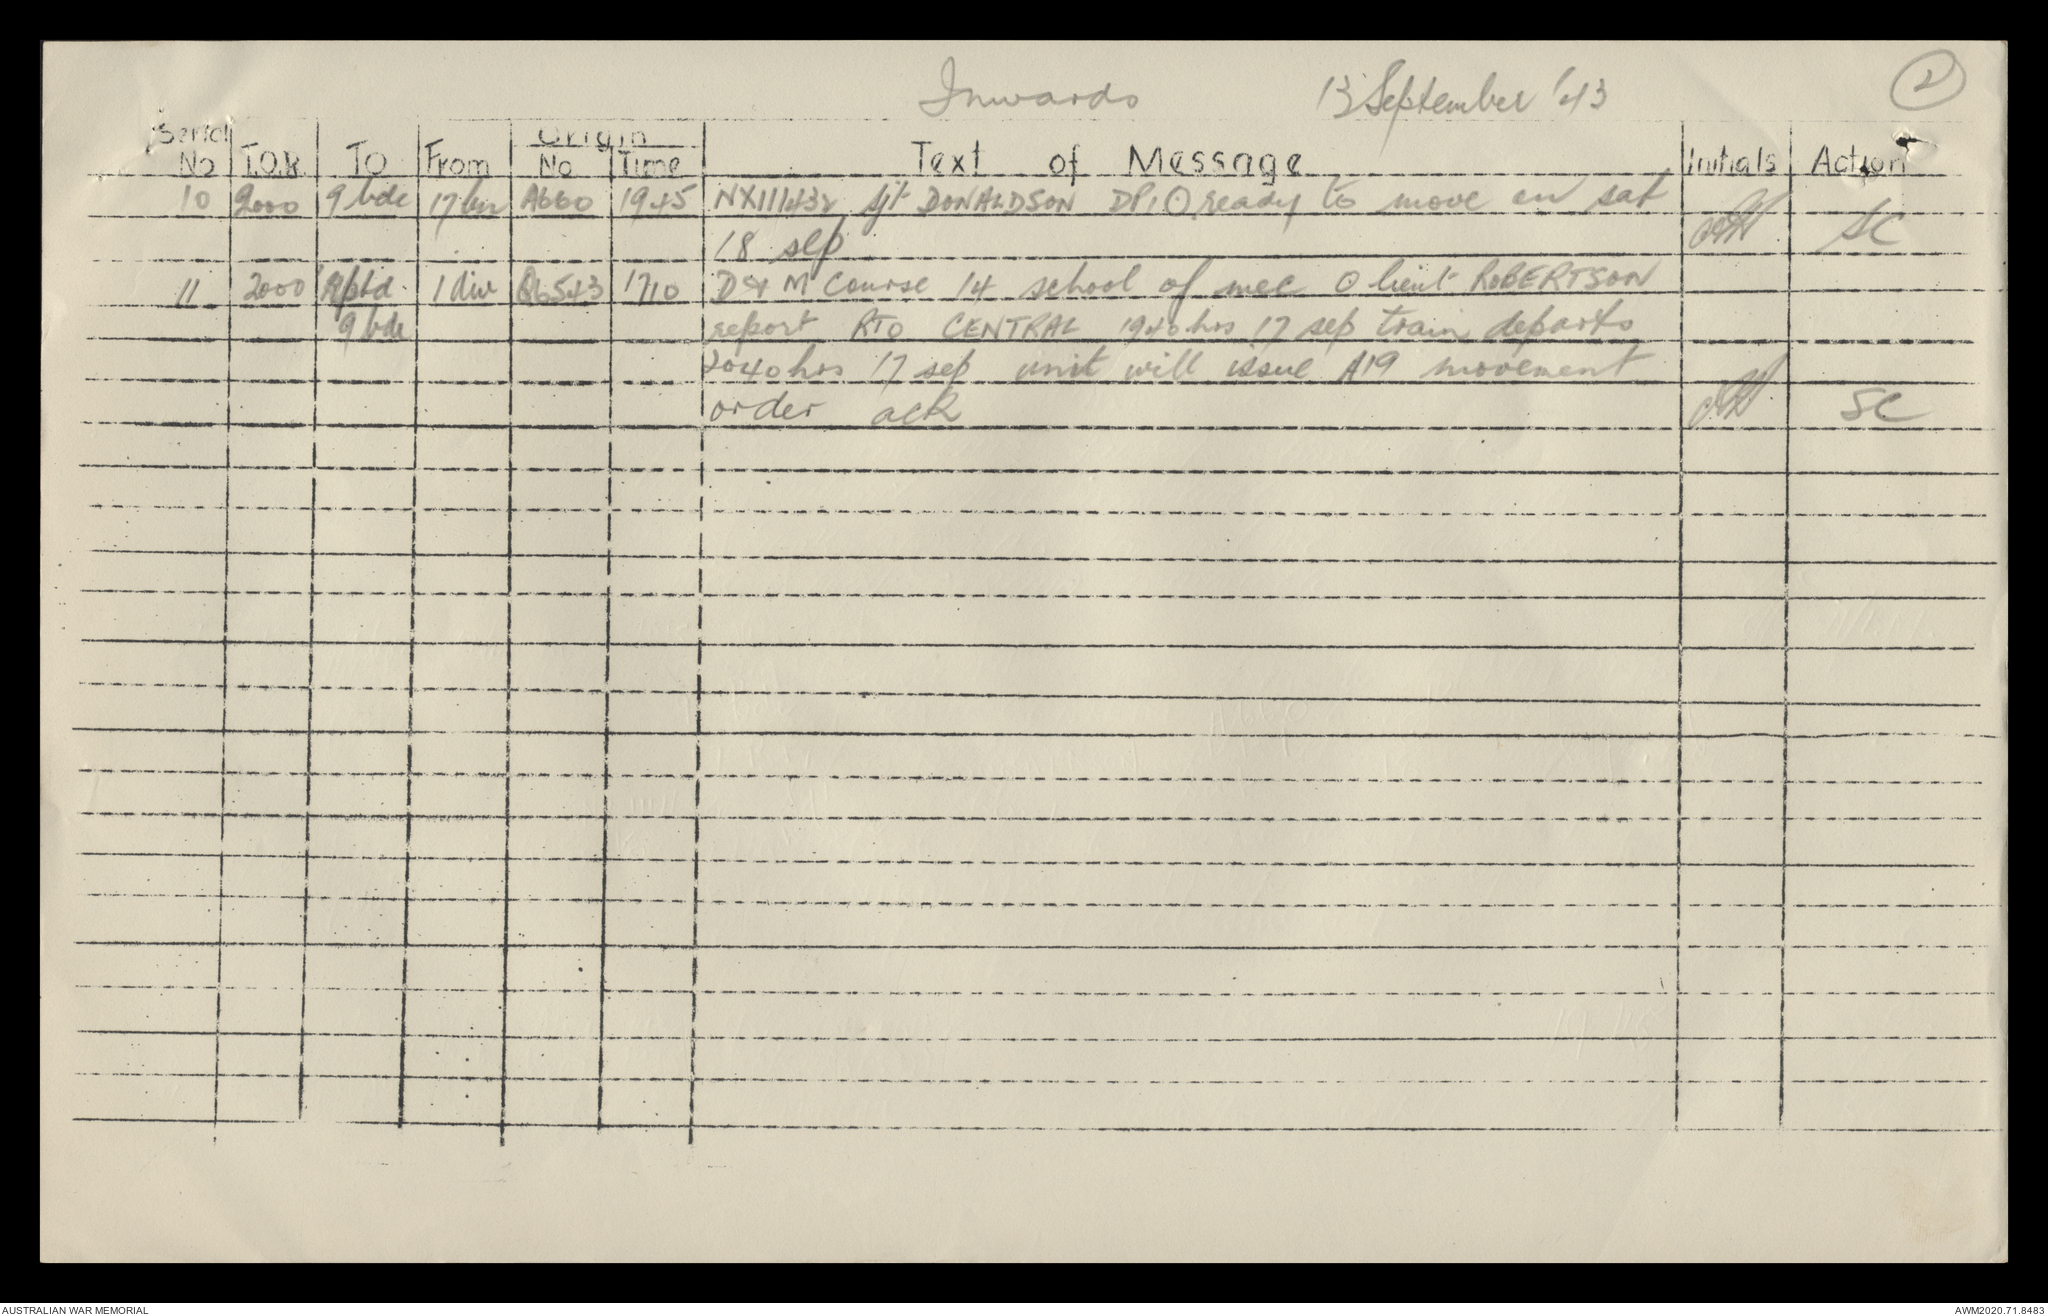 Inwards 13 September '43 2
Serial Origin
No T.O.R. TO From No Time Text of Message Initials Action
10 2000 9 bde 17 bn A660 1945 NX111432 sjt DONALDSON DP1 ⊙ ready to move on sat
18 sep SC
11 2000 Rptd 1 div Q6543 1710 D & M Course 14 school of mec ⊙ lieut ROBERTSON
9 bde report RTO CENTRAL 1940 hrs 17 sep train departs
2040 hrs 17 sep unit will issue A19 movement
order ack SC
AUSTRALIAN WAR MEMORIAL AWM2020.71.8483